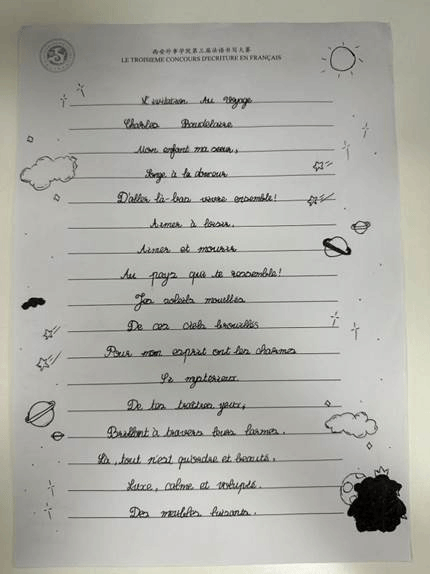 西安外事学院第三届法语书写大赛
LE TROISIEME CONCOURS D'ECRITURE EN FRANÇAIS
L'invitation Au Voyage
Charles Baudelaire
Mon enfant ma sœur,
Songe à la douceur
D'aller là-bas vivre ensemble!
Aimer à loisir.
Aimer et mourir
Au pays qui te ressemble!
Les soleils mouillés
De ces ciels brouillés
Pour mon esprit ont les charmes
Si mystérieux.
De tes traîtres yeux,
Brillant à travers leurs larmes.
Là, tout n'est qu'ordre et beauté,
Luxe, calme et volupté.
Des meubles luisants.